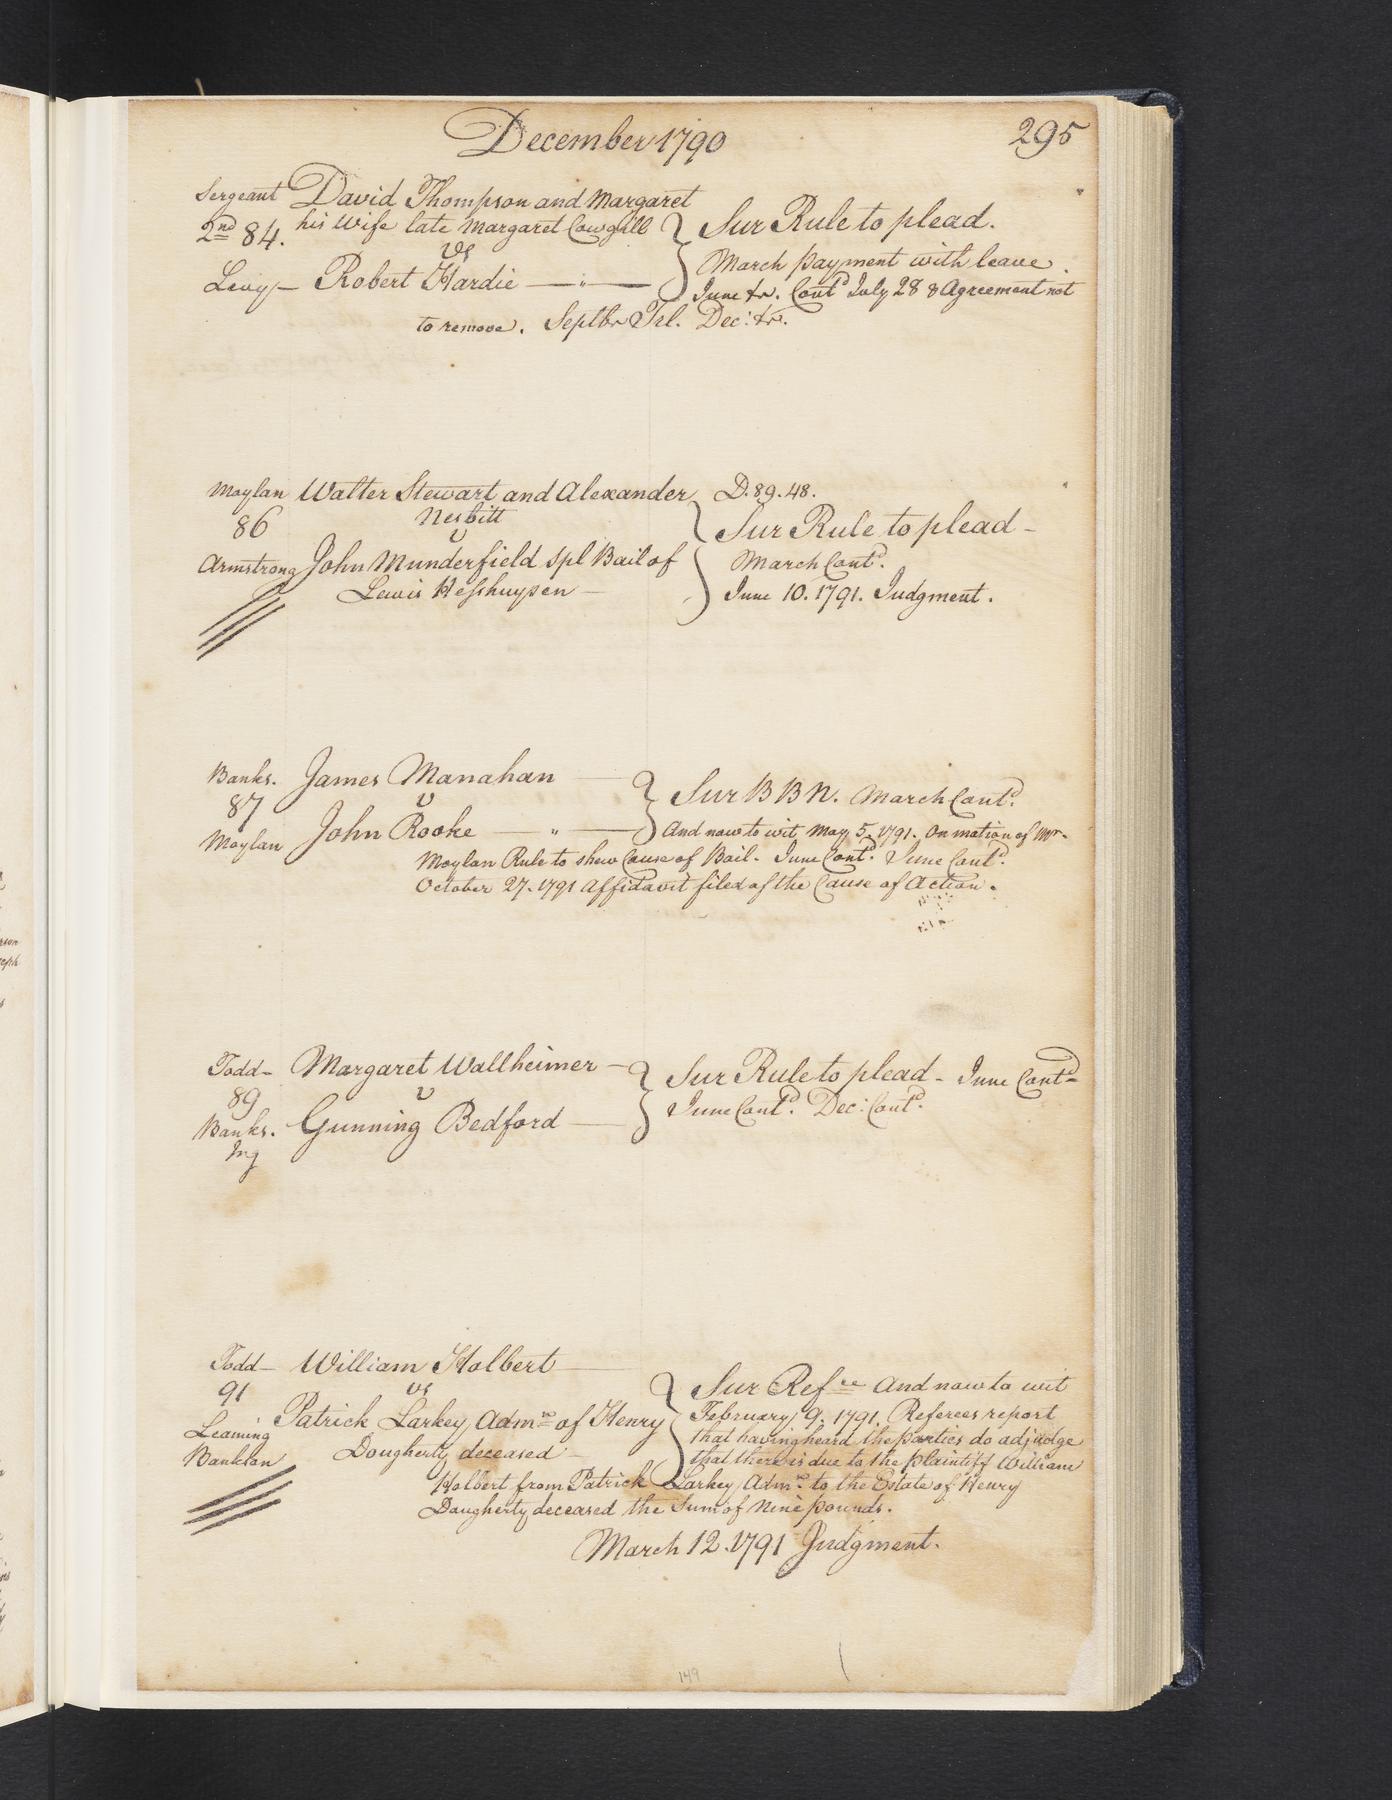 December 1790
295
Sergeant David Thompson and Margaret
2nd 84. his Wife late Margaret Cowgill } Sur Rule to plead.
vs
March payment with leave.
Levy — Robert Hardie — " —
June &c. Contd July 28 & Agreement not
to remove. Septbr Trl. Dec: &c.
Moylan Walter Stewart and Alexander D. 89. 48.
86 Nesbitt } Sur Rule to plead -
v
Armstrong John Munderfield spl Bail of March Contd.
Lewis Hesshuysen — June 10. 1791. Judgment.
Banks. James Manahan —
87 v } Sur B B N. March Contd.
Moylan John Rooke — " — And now to wit May 5. 1791. On motion of Mr.
Moylan Rule to shew Cause of Bail. June Contd. June Contd.
October 27. 1791 Affidavit filed of the Cause of Action.
Todd — Margaret Wallheimer — } Sur Rule to plead - June Contd -
89 v
June Contd. Dec: Contd.
Banks. Gunning Bedford —
Ing
Todd — William Holbert —
91 vs } Sur Refce And now to wit
Patrick Larkey, Adm. of Henry February 9. 1791. Referees report
Leaming
that having heard the parties do adjudge
Dougherty deceased —
Bankson that there is due to the plaintiff William
Holbert from Patrick Larkey, Adm. to the Estate of Henry
Daugherty deceased the Sum of Nine pounds.
March 12. 1791 Judgment.
149